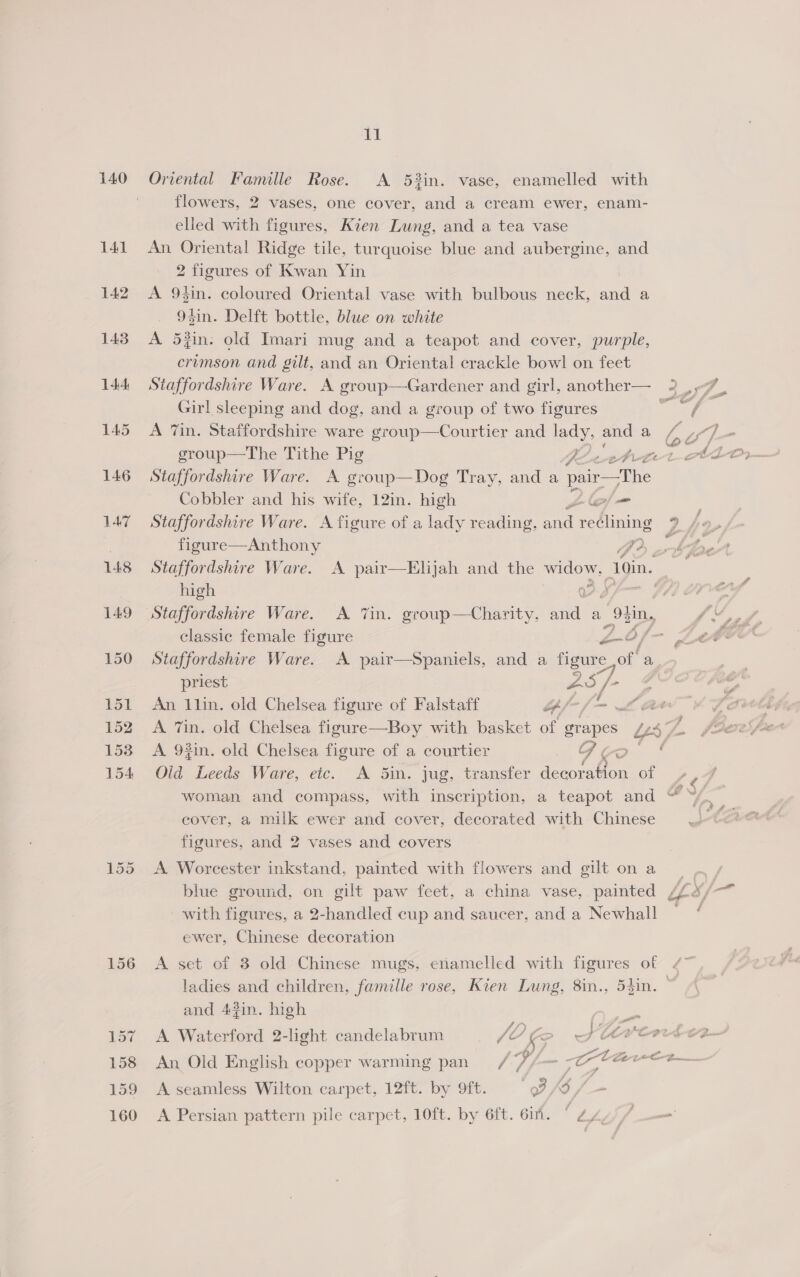 11
140 Oriental Famille Rose. A 5¾in. vase, enamelled with
flowers, 2 vases, one cover, and a cream ewer, enam-
elled with figures, Kien Lung, and a tea vase
141 An Oriental Ridge tile, turquoise blue and aubergine, and
2 figures of Kwan Yin
142 A 9½in. coloured Oriental vase with bulbous neck, and a
9½in. Delft bottle, blue on white
143 A 5¾in. old Imari mug and a teapot and cover, purple,
crimson and gilt, and an Oriental crackle bowl on feet
144 Staffordshire Ware. A group—Gardener and girl, another—
Girl sleeping and dog, and a group of two figures
145 A 7in. Staffordshire ware group—Courtier and lady, and a
group—The Tithe Pig
146 Staffordshire Ware. A group—Dog Tray, and a pair—The
Cobbler and his wife, 12in. high
147 Staffordshire Ware. A figure of a lady reading, and reclining
figure—Anthony
148 Staffordshire Ware. A pair—Elijah and the widow, 10in.
high
149 Staffordshire Ware. A 7in. group—Charity, and a 9½in.
classic female figure
150 Staffordshire Ware. A pair—Spaniels, and a figure of a
priest 25/-
151 An 11in. old Chelsea figure of Falstaff
152 A 7in. old Chelsea figure—Boy with basket of grapes
153 A 9¾in. old Chelsea figure of a courtier
154 Old Leeds Ware, etc. A 5in. jug, transfer decoration of
woman and compass, with inscription, a teapot and
cover, a milk ewer and cover, decorated with Chinese
figures, and 2 vases and covers
155 A Worcester inkstand, painted with flowers and gilt on a
blue ground, on gilt paw feet, a china vase, painted
with figures, a 2-handled cup and saucer, and a Newhall
ewer, Chinese decoration
156 A set of 3 old Chinese mugs, enamelled with figures of
ladies and children, famille rose, Kien Lung, 8in., 5½in.
and 4¾in. high
157 A Waterford 2-light candelabrum
158 An Old English copper warming pan
159 A seamless Wilton carpet, 12ft. by 9ft.
160 A Persian pattern pile carpet, 10ft. by 6ft. 6in.